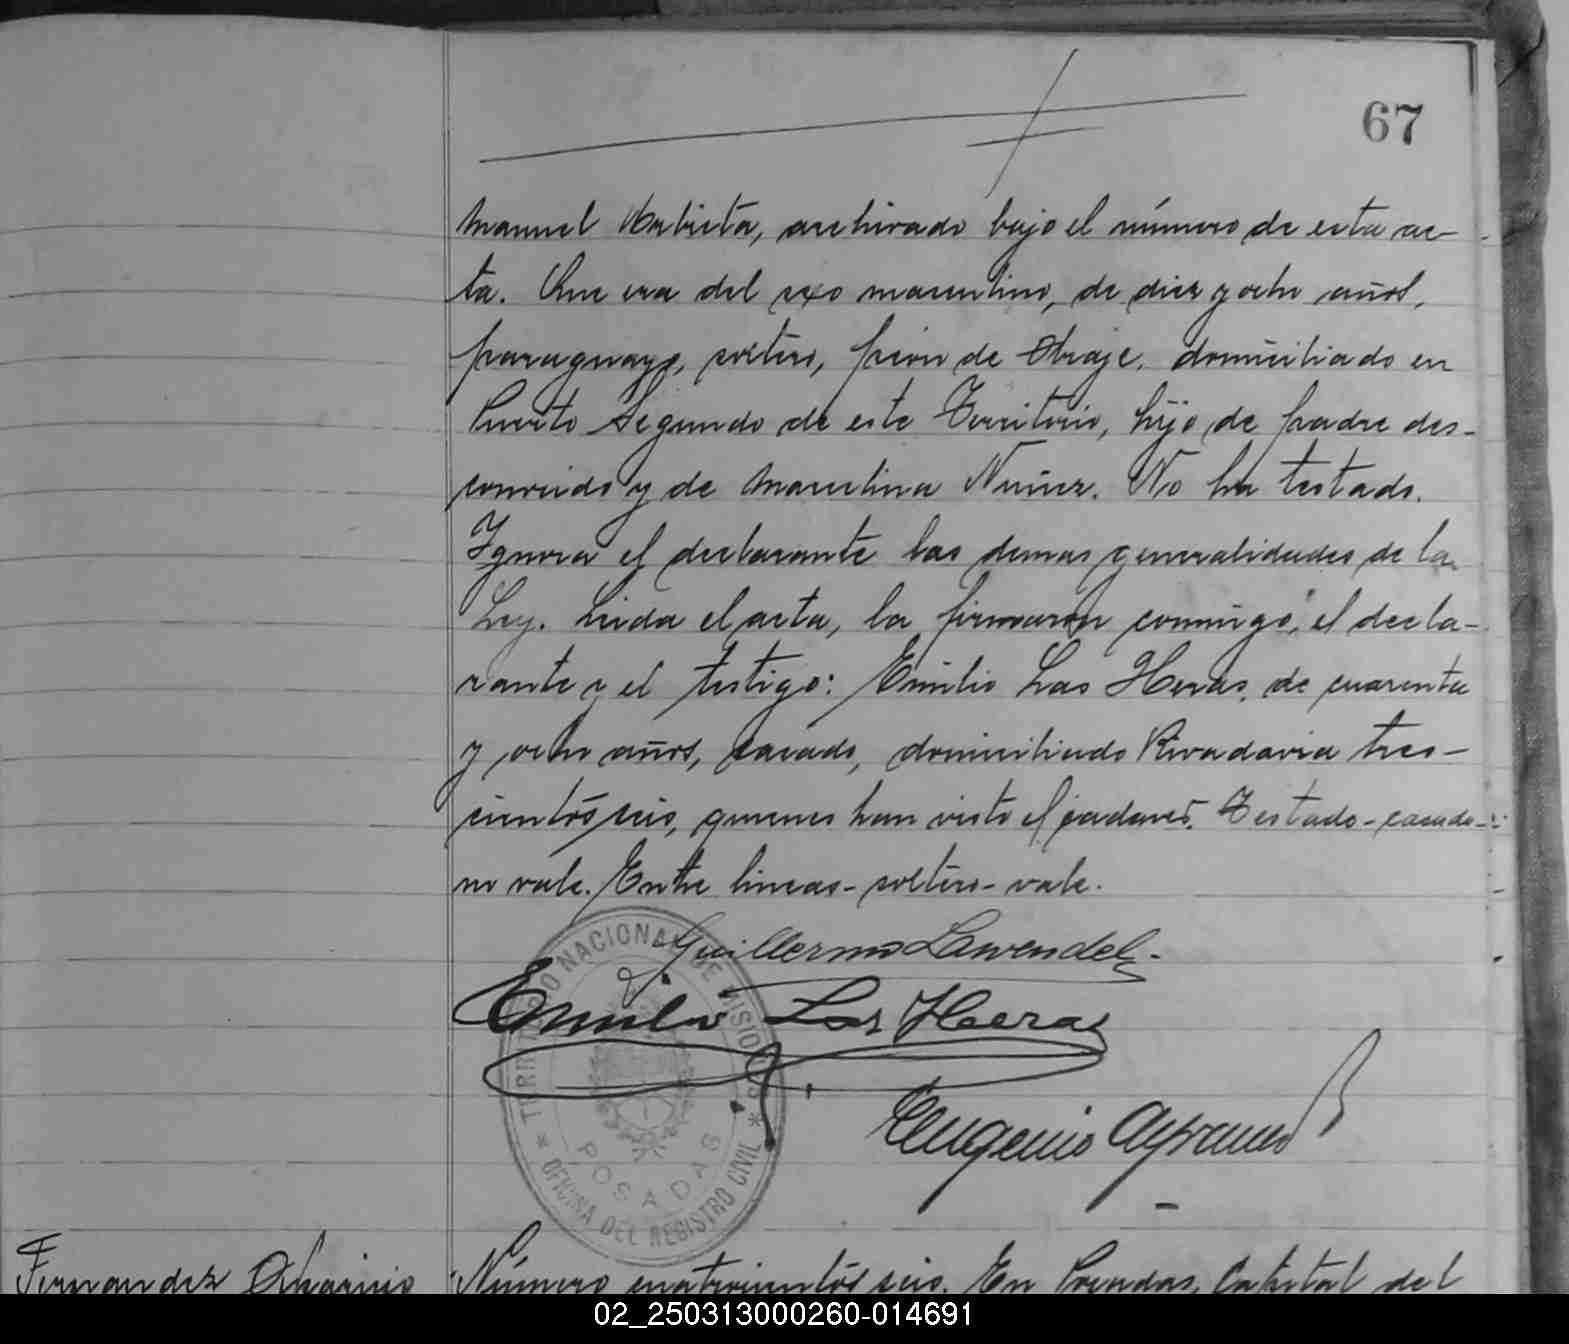 67
Manuel Urbieta, archivado bajo el número de esta ac-
ta. Que era del sexo masculino, de diez y ocho años,
paraguayo, soltero, peon de Obraje, domiciliado en
Puerto Segundo de este Territorio, hijo de padre des-
conocido y de Marcelina Nuñez. No ha testado.
Ignora el declarante las demas generalidades de la
Ley. Leida el acta, la firmaron conmigo, el decla-
rante y el testigo: Emilio Las Heras, de cuarenta
y ocho años, casado, domiciliado Rivadavia tres-
cientós seis, quienes han visto el cadaver. Testado-casado-
no vale. Entre lineas-soltero-vale.
Guillermo Lavendel
Emilio Las Heras
Eugenio
TERRITORIO NACIONAL DE MISIONES
POSADAS
OFICINA DEL REGISTRO CIVIL
Fernandez
Número cuatrocientós seis. En Posadas, Capital del
02_250313000260-014691